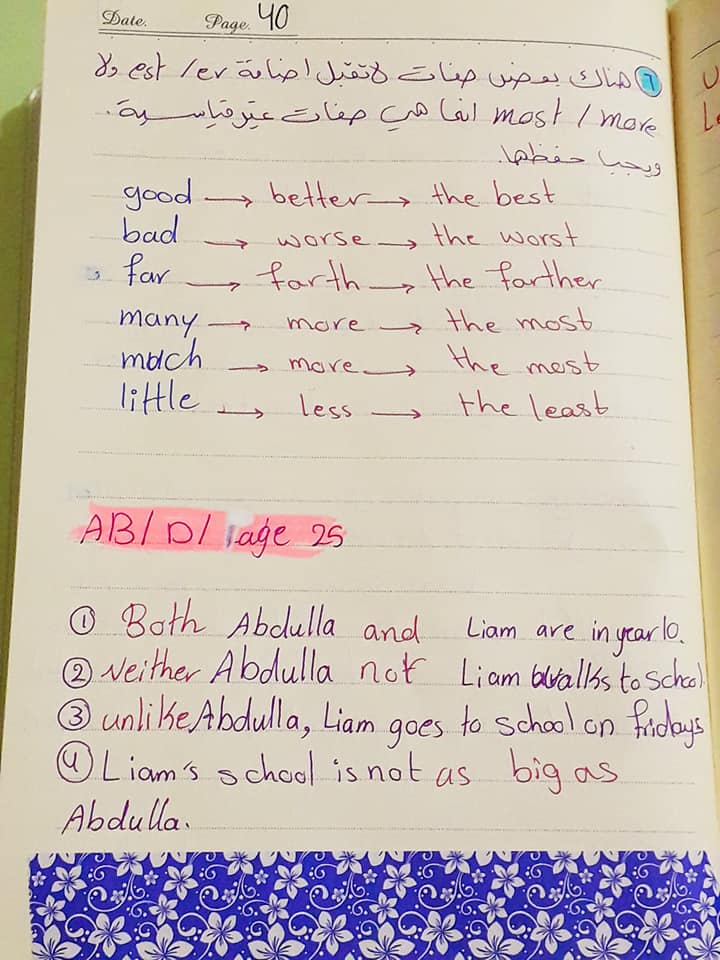 Date. Page. 40
٦ هناك بعض صفات لا تقبل اضافة est / er ولا
most / more انما هي صفات غير قياسية.
ويجب حفظها.
good → better → the best
bad → worse → the worst
far → farth → the farther
many → more → the most
much → more → the most
little → less → the least
AB / D / Page 25
① Both Abdulla and Liam are in year 10.
② Neither Abdulla not Liam walks to school
③ unlike Abdulla, Liam goes to school on fridays
④ Liam's school is not as big as
Abdulla.